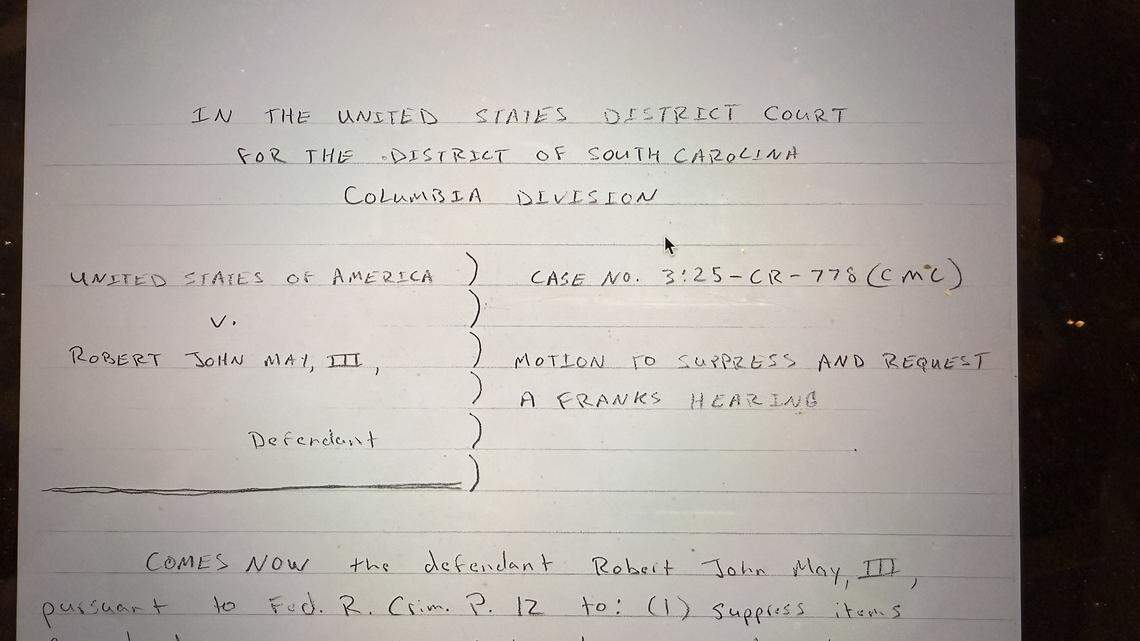 IN THE UNITED STATES DISTRICT COURT
FOR THE DISTRICT OF SOUTH CAROLINA
COLUMBIA DIVISION
UNITED STATES OF AMERICA ) CASE NO. 3:25-CR-778 (CMC)
v. )
ROBERT JOHN MAY, III, ) MOTION TO SUPPRESS AND REQUEST
) A FRANKS HEARING
Defendant )
)
COMES NOW the defendant Robert John May, III,
pursuant to Fed. R. Crim. P. 12 to: (1) suppress items